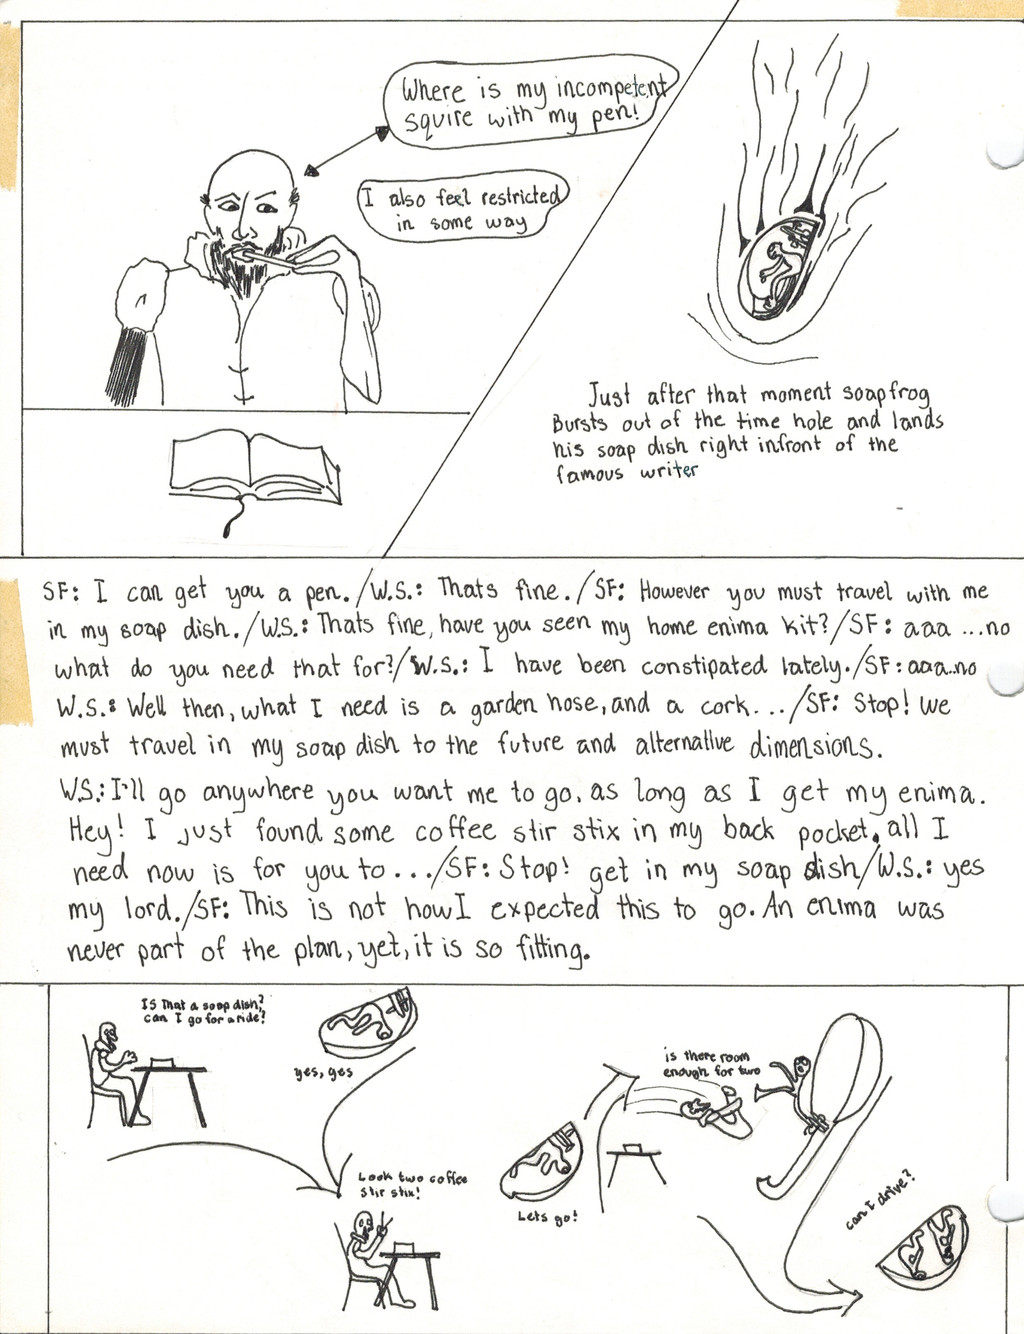 Where is my incompetent
squire with my pen!
I also feel restricted
in some way
Just after that moment soapfrog
Bursts out of the time hole and lands
his soap dish right infront of the
famous writer
SF: I can get you a pen./W.S.: Thats fine./SF: However you must travel with me
in my soap dish./W.S.: Thats fine, have you seen my home enima kit?/SF: aaa ...no
what do you need that for?/W.S.: I have been constipated lately./SF: aaa...no
W.S.: Well then, what I need is a garden hose, and a cork.../SF: Stop! we
must travel in my soap dish to the future and alternative dimensions.
W.S.: I'll go anywhere you want me to go, as long as I get my enima.
Hey! I just found some coffee stir stix in my back pocket, all I
need now is for you to .../SF: Stop! get in my soap dish/W.S.: yes
my lord./SF: This is not how I expected this to go. An enima was
never part of the plan, yet, it is so fitting.
IS that a soap dish?
can I go for a ride?
yes, yes
Look two coffee
stir stix!
Lets go!
is there room
enough for two
can I drive?